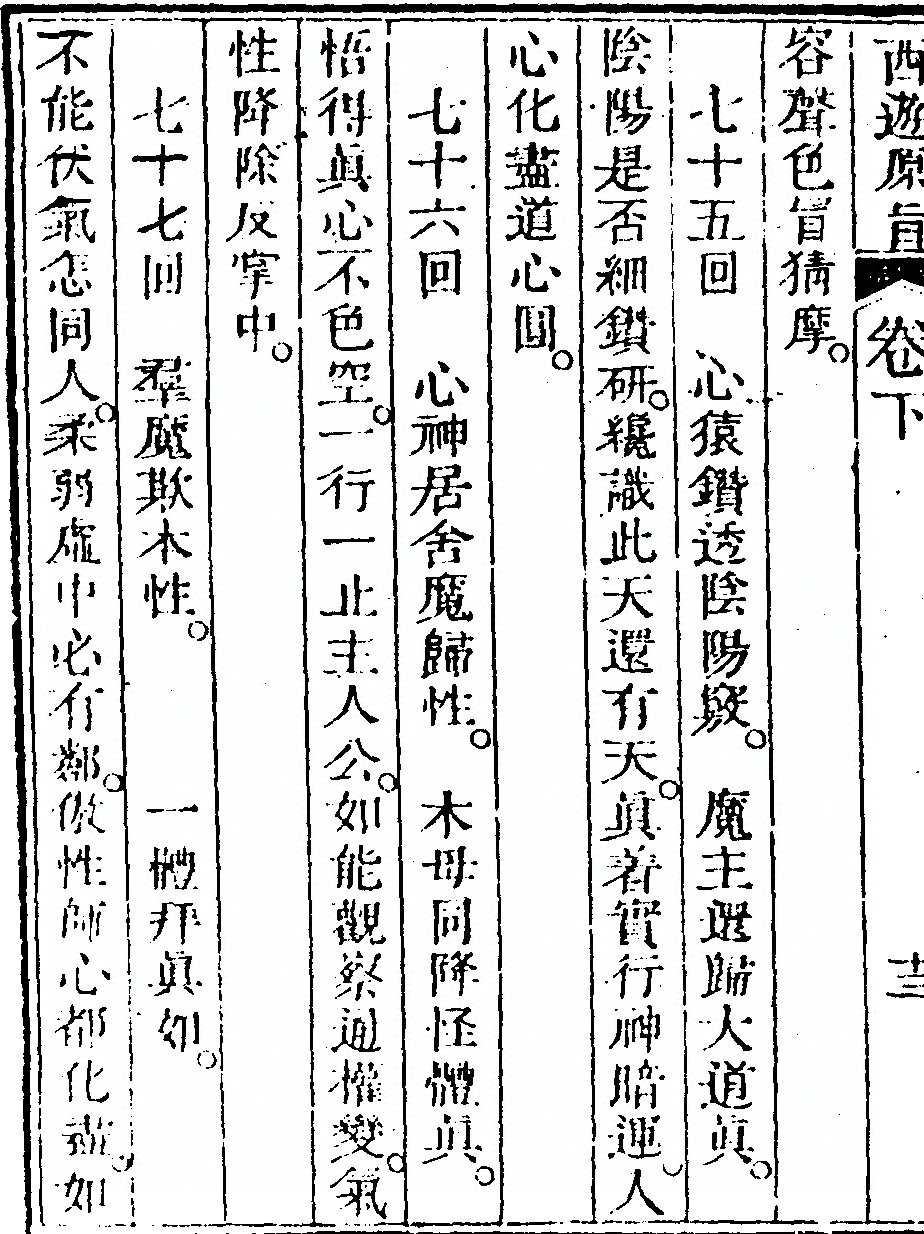 西遊原旨 卷下 十三
容聲色冒猜摩。
七十五回 心猿鑽透陰陽竅。 魔主還歸大道眞。
陰陽是否細鑽研。纔識此天還有天。眞著實行神暗運。人
心化盡道心圓。
七十六回 心神居舍魔歸性。 木母同降怪體眞。
悟得眞心不色空。一行一止主人公。如能觀察通權變。氣
性降除反掌中。
七十七回 羣魔欺本性。 一體拜眞如。
不能伏氣怎同人。柔弱虛中必有鄰。傲性師心都化盡。如